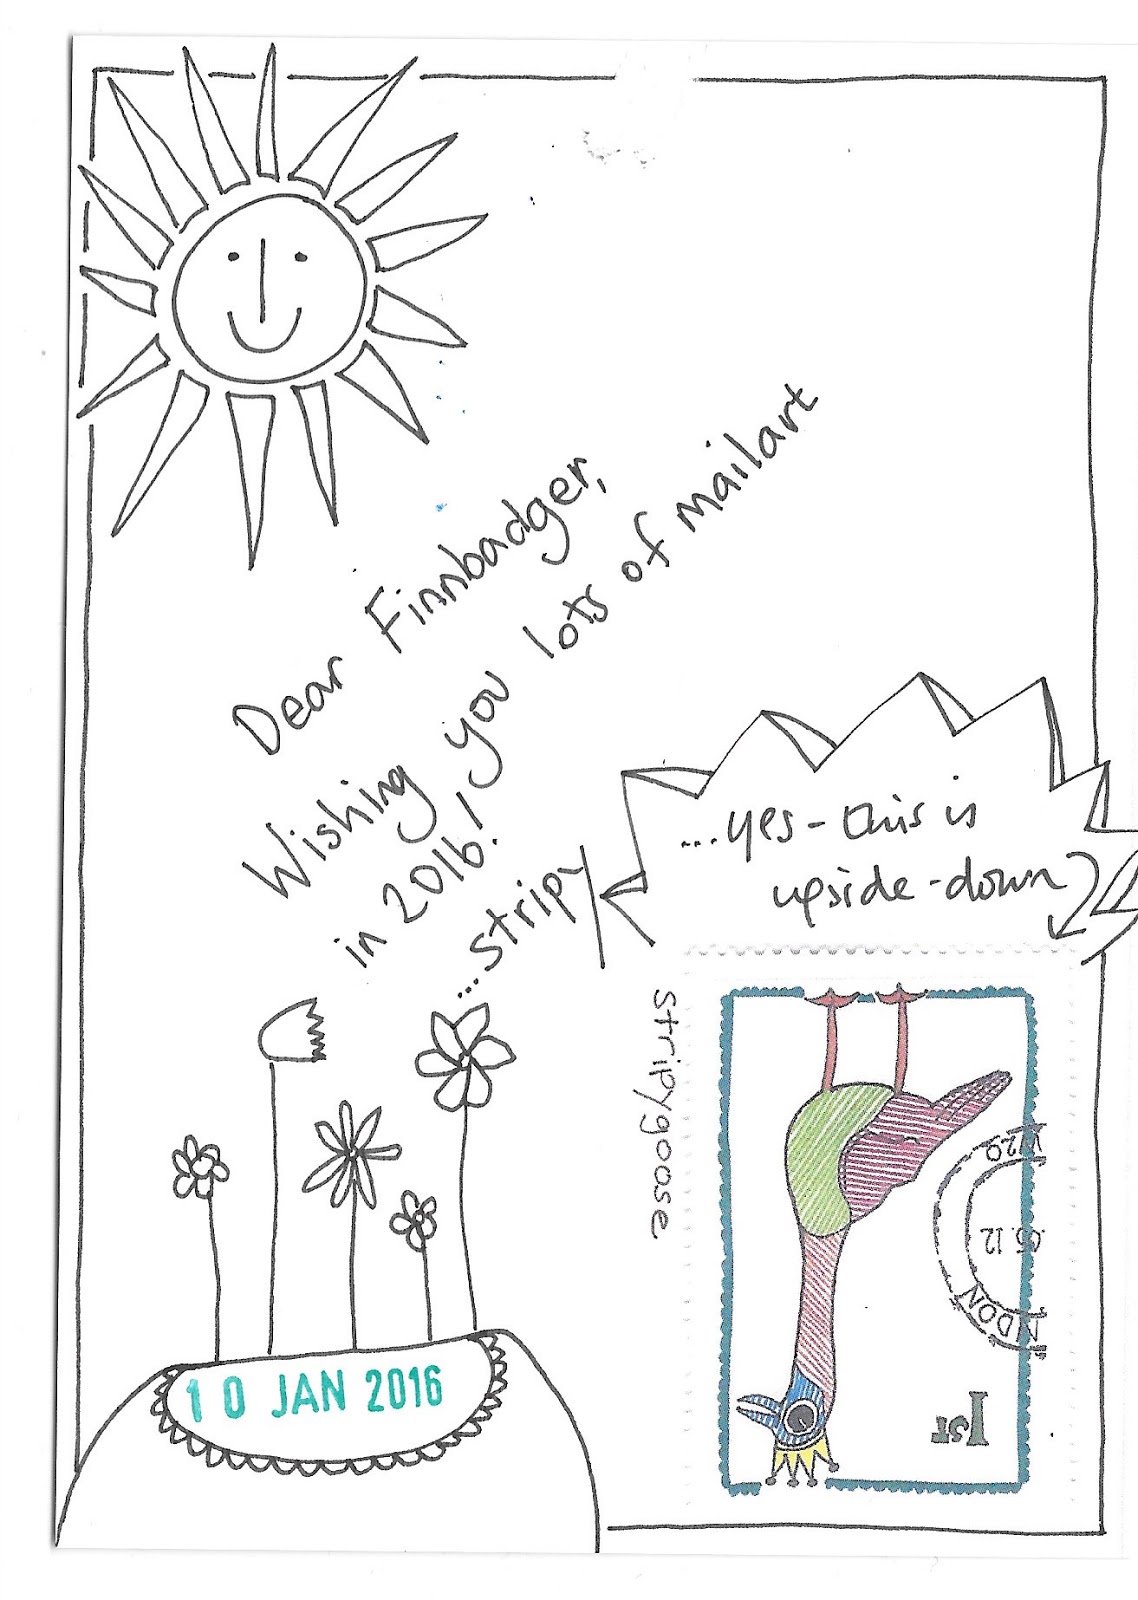 Dear Finnbadger,
Wishing you lots of mailart
in 2016!
...stripy
...yes - this is
upside-down
stripygoose
1st
W20
.05.12
NDON
10 JAN 2016